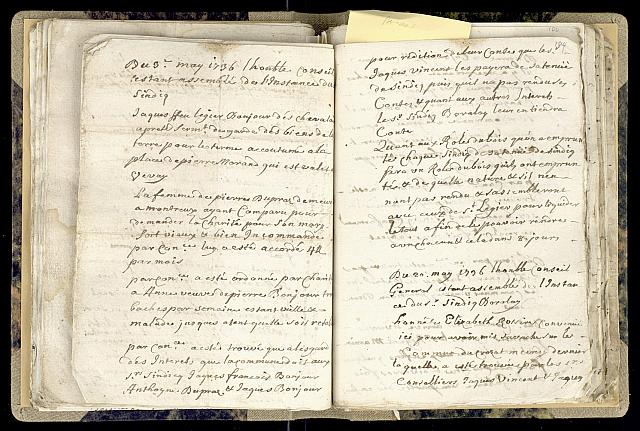 Du 3e. may 1736 lhonble conseil
estant assemblé des l'Instance du
Sindiq
Jaques ffeu Legier Bonjour des chevala
apresté sermt. de garde des biens de la
terre, pour le terme accoutumé a la
place de pierre Morand qui est valet
Vevay
La femme de pierre Dupraz demeur
a montreux ayant comparu pour
demander la charité pour son mary
fort vieux et bien Incommodé
par Con
par mois
par con a esté ordonné par charit
a Anne veuve de pierre Bonjour
baches par semaine estant vieille &
malade jusques a tant quelle soit retab
par con a esté trouvé que alesgard
des Interets que la commune doit aux
srs. Sindicq Jaques francois Bonjour
Anthoyne Dupraz & Jaques Bonjour
pour rédition de leur Contes que les
Jaques vincent les payera de sa tenue
de Sindiq puis quil na pas rendu ses
Contes & quant aux autres Interets
le Sr. Sindiq Boralay leur en tiendra
Conte
Quant aux Role du bois qu'on a emprun
té chaque Sindiq de sa tenue de sindiq
fera un Role du bois quils ont emprun
té, & de quelle nature & sil nen
nont pas rendu & sassembleront
avec ceux de St. Legier pour
le tout afin de le pouvoir rendre
a un chacun & cela dans 8 jours
Du 20. may 1736 lhonble Conseil
General estant assemblé de l'Instan
ce du Sr. Sindiq Boralay
honnête Elizabeth
pour avoir mis
dernier
laquelle a esté trouvée par les
Conseilliers Jaques Vincent & Jaques